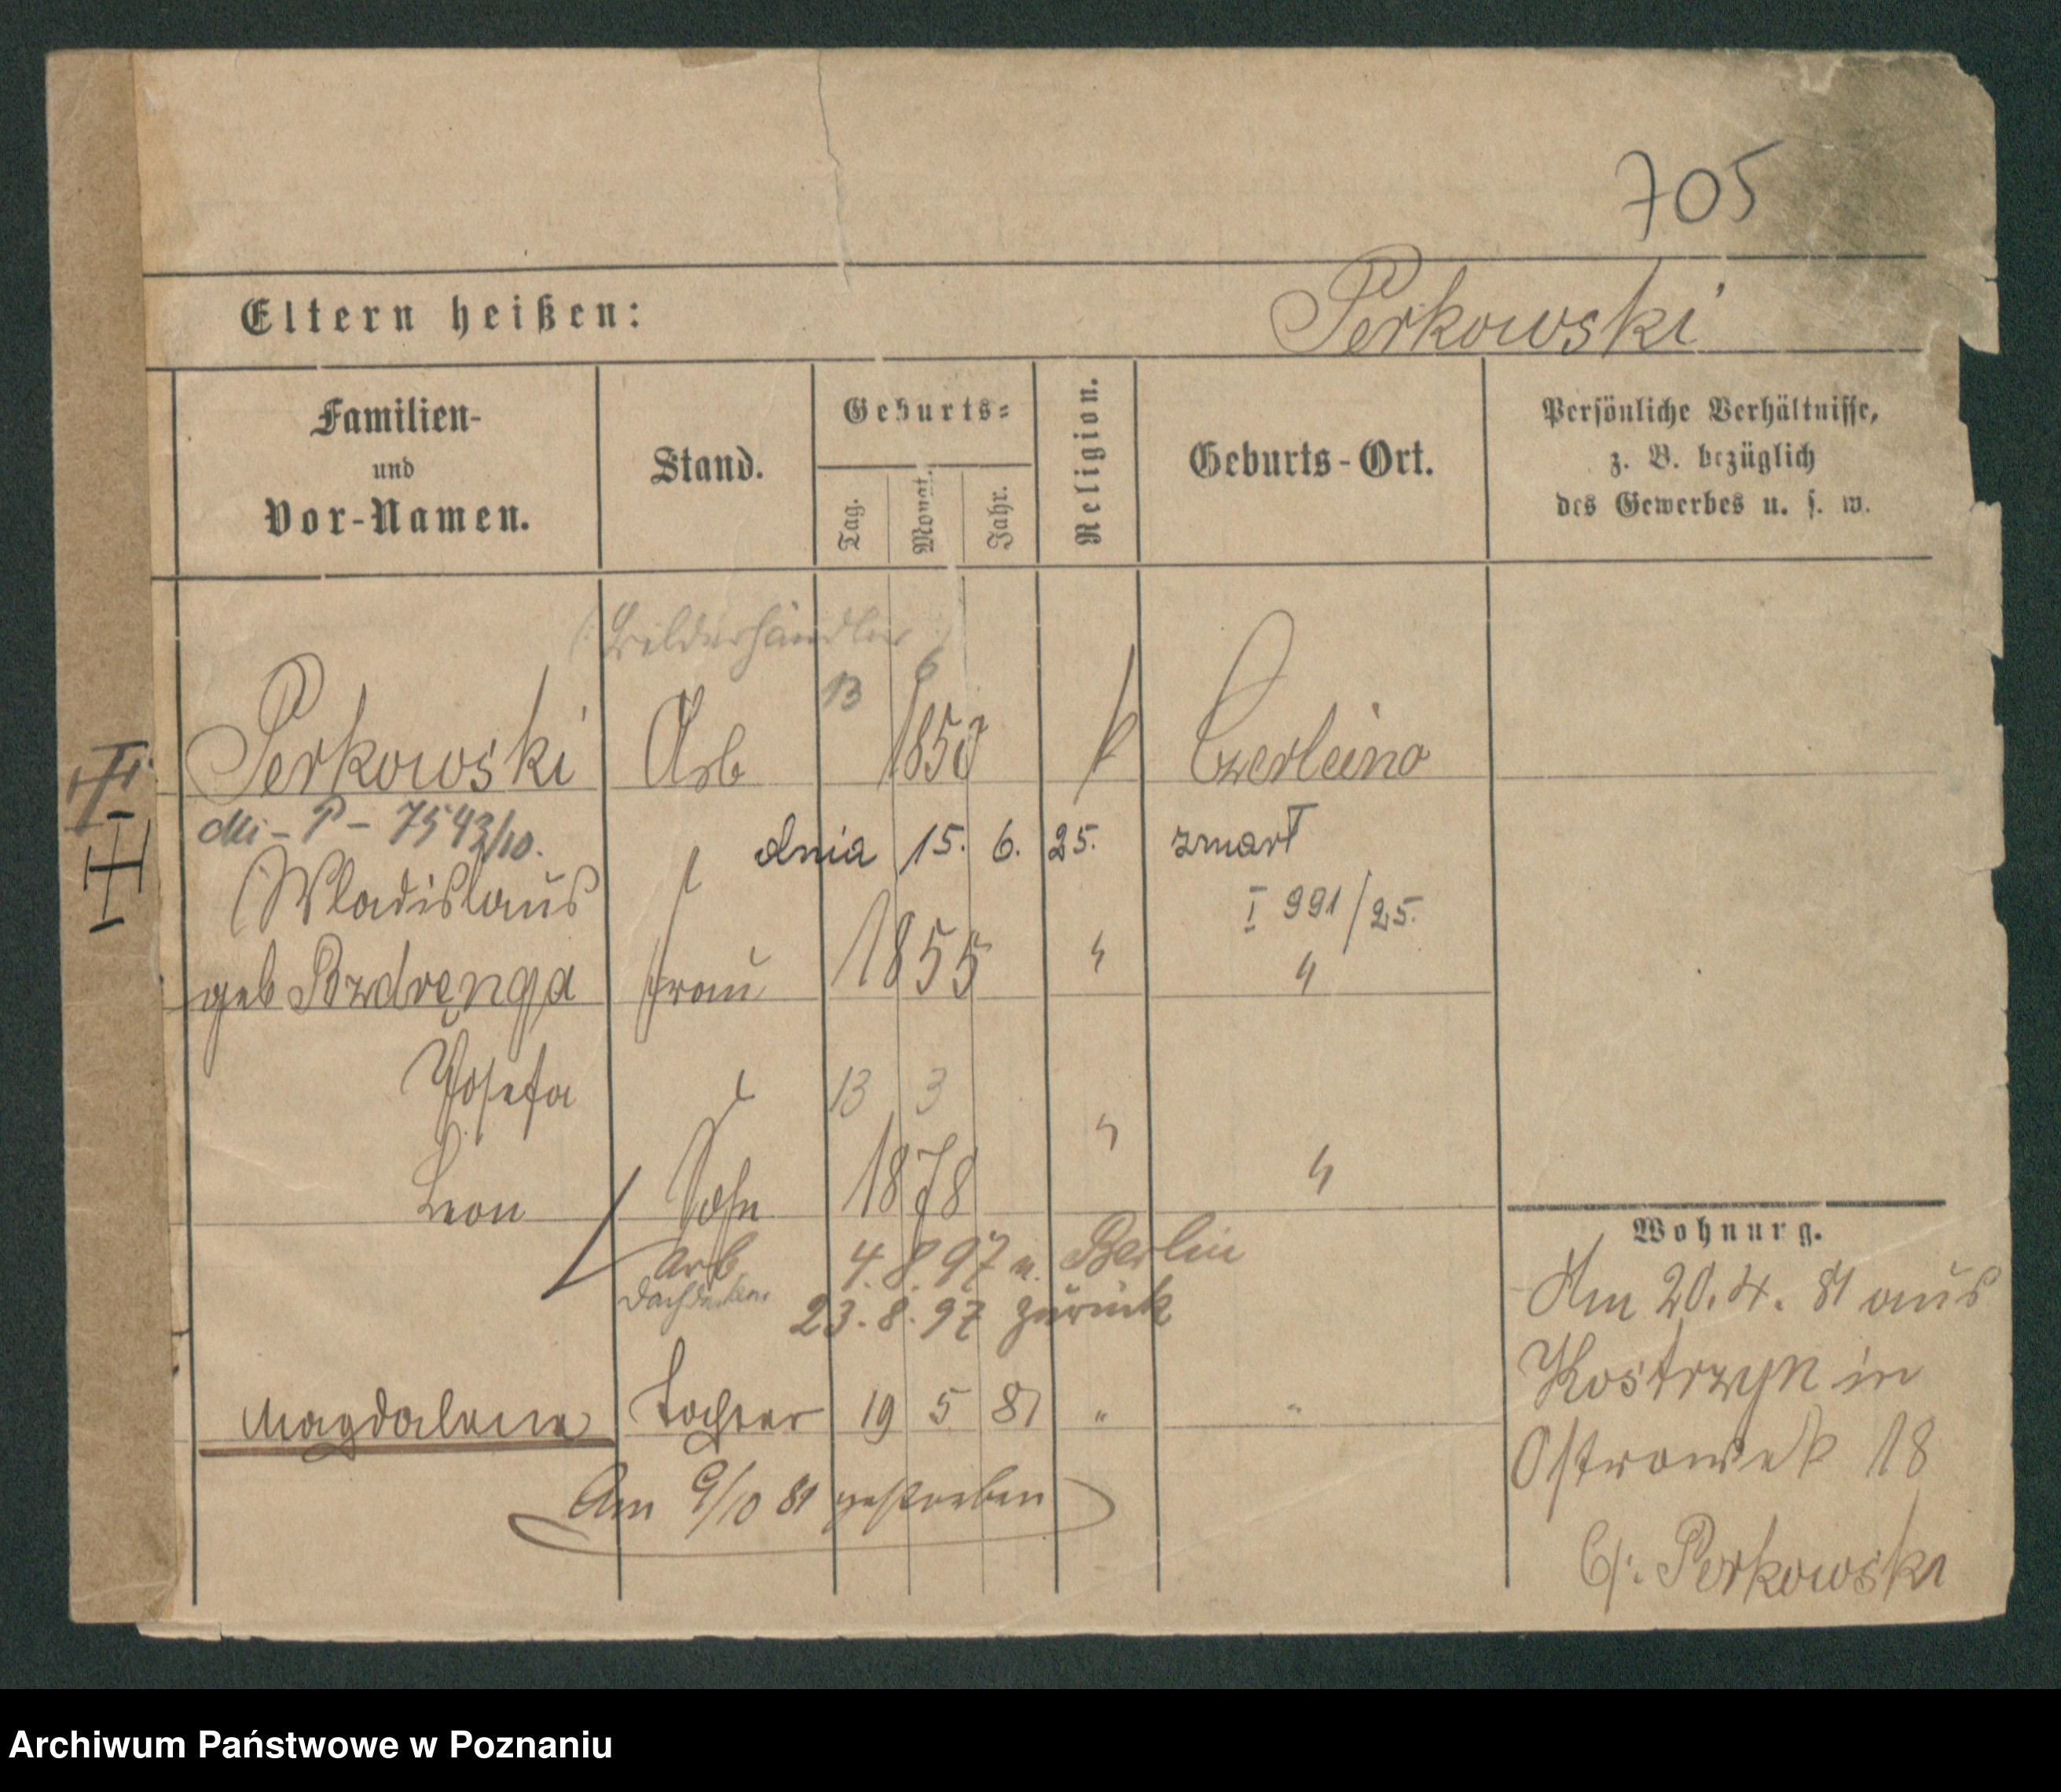 705
Eltern heißen: Perkowski
Familien-
und
Vor-Namen.
Stand.
Geburts-
Tag.
Monat.
Jahr.
Religion.
Geburts-Ort.
Persönliche Verhältnisse,
z. B. bezüglich
des Gewerbes u. s. w.
(Bilderhändler)
13 6
Perkowski Arb 1850 k Czerleino
Mi - P - 7543/10.
dnia 15. 6. 25. zmarł
Wladislaus
I 991/25.
geb Bzdrenga Frau 1855 " "
Josefa
13 3
Leon Sohn 1878 " "
Arb 4.8.97 n. Berlin
Dachdecker 23.8.97 zurück
Magdalena Tochter 19 5 81 " "
Am 9/10 81 gestorben
Wohnung.
Am 20.4. 81 aus
Kostrzyn in
Ostrowek 18
Perkowski
Archiwum Państwowe w Poznaniu